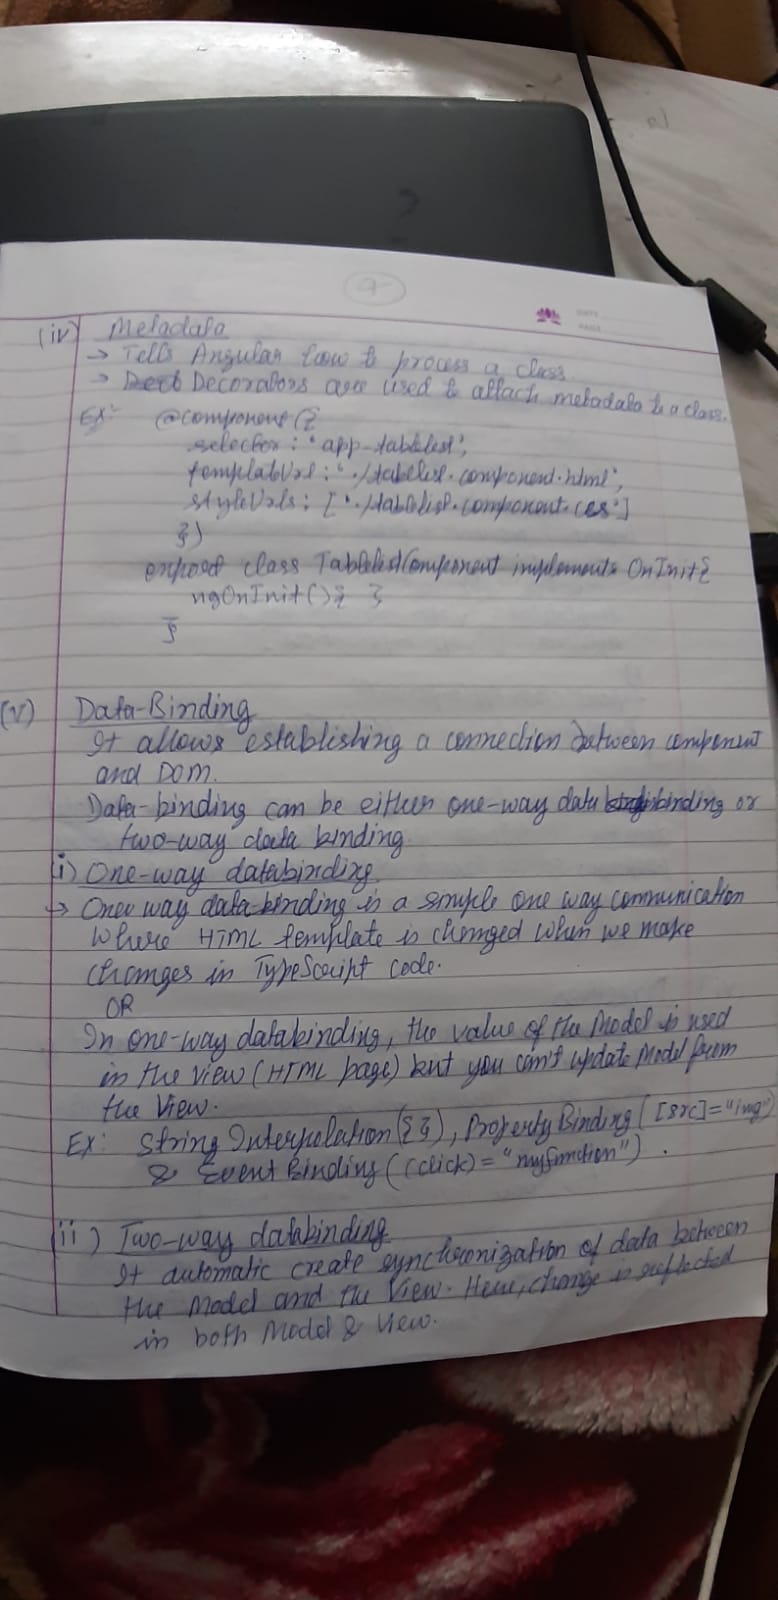 9
DATE
PAGE
(iv) Metadata
→ Tells Angular how to process a class.
→ Decorators are used to attach metadata to a class.
Ex:- @component({
selector: 'app-tablelist',
templateUrl: './tablelist.component.html',
styleUrls: ['./tablelist.component.css']
})
export class TablelistComponent implements OnInit{
ngOnInit(){ }
}
(v) Data-Binding
It allows establishing a connection between component
and DOM.
Data-binding can be either one-way data binding or
two-way data binding.
(i) One-way databinding
→ One way data-binding is a simple one way communication
where HTML template is changed when we make
changes in TypeScript code.
OR
In one-way databinding, the value of the Model is used
in the view (HTML page) but you can't update Model from
the View.
Ex: String Interpolation({ }), Property Binding([src]="img")
& Event Binding((click)="myfunction").
(ii) Two-way databinding
It automatic create synchronization of data between
the Model and the View. Here, change is reflected
in both Model & View.